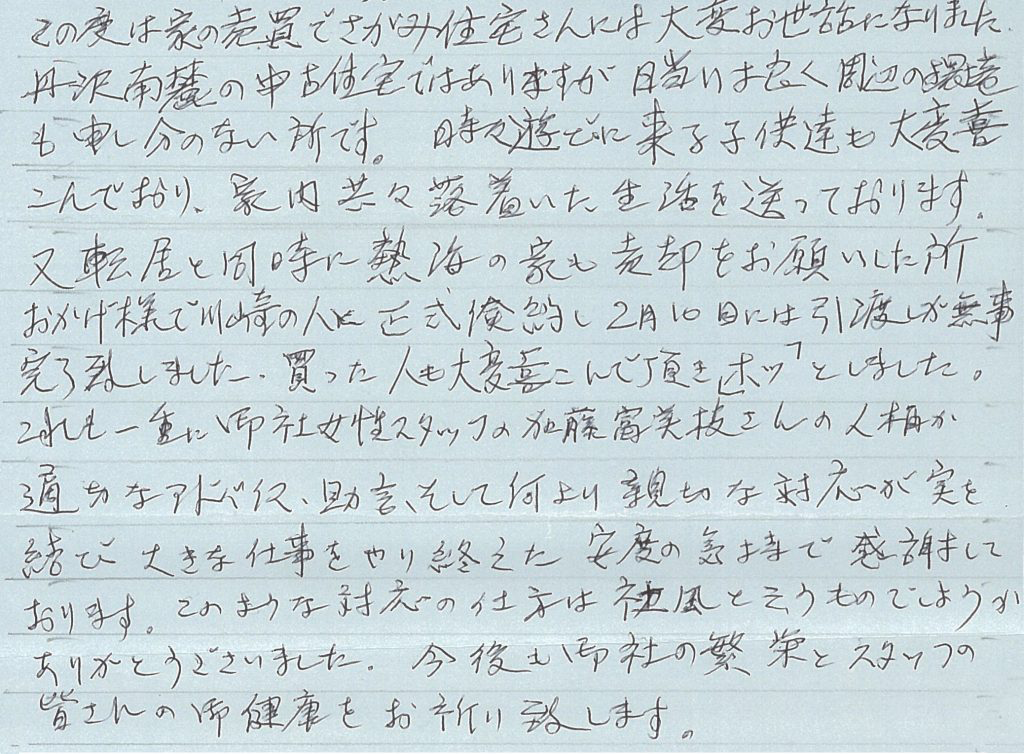 この度は家の売買でさがみ住宅さんには大変お世話になりました.
丹沢南麓の中古住宅ではありますが日当りは良く周辺の環境
も申し分のない所です。時々遊びに来る子供達も大変喜
こんでおり、家内共々落着いた生活を送っております。
又転居と同時に熱海の家も売却をお願いした所
おかげ様で川崎の人に正式倹約し2月10日には引渡しが無事
完了致しました。買った人も大変喜こんで頂き「ホッ」としました。
これも一重に御社女性スタッフの加藤富美枝さんの人柄か
適切なアドバイス、助言、そして何より親切な対応が実を
結び大きな仕事をやり終えた安度の気持で感謝して
おります。このような対応の仕方は社風と云うものでしようか
ありがとうございました。今後も御社の繁栄とスタッフの
皆さんの御健康をお祈り致します。